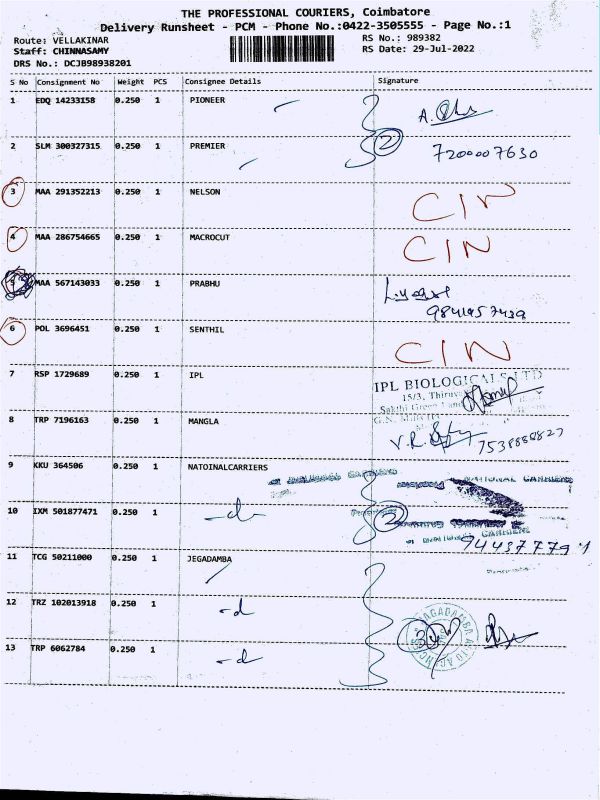 THE PROFESSIONAL COURIERS, Coimbatore
Delivery Runsheet - PCM - Phone No.:0422-3505555 - Page No.:1
Route: VELLAKINAR RS No.: 989382
Staff: CHINNASAMY RS Date: 29-Jul-2022
DRS No.: DCJB98938201
S No Consignment No Weight PCS Consignee Details Signature
1 EDQ 14233158 0.250 1 PIONEER
2 SLM 300327315 0.250 1 PREMIER 2 7200007630
3 MAA 291352213 0.250 1 NELSON CIN
4 MAA 286754665 0.250 1 MACROCUT CIN
5 MAA 567143033 0.250 1 PRABHU
6 POL 3696451 0.250 1 SENTHIL CIN
7 RSP 1729689 0.250 1 IPL IPL BIOLOGICALS LTD
15/3,
8 TRP 7196163 0.250 1 MANGLA V.R.
9 KKU 364506 0.250 1 NATOINALCARRIERS NATIONAL CARRIERS
10 IXM 501877471 0.250 1 -d- 2
11 TCG 50211000 0.250 1 JEGADAMBA
12 TRZ 102013918 0.250 1 -d
13 TRP 6062784 0.250 1 -d 3